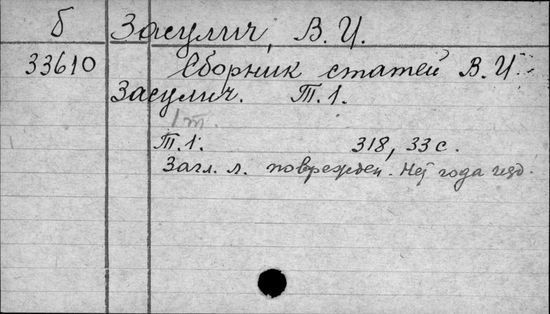 б Засулич, В. И.
33610 Сборник статей В. И.
Засулич. Т. 1.
1 т.
Т. 1. 318, 33 с.
Загл. л. поврежден. Нет года изд.